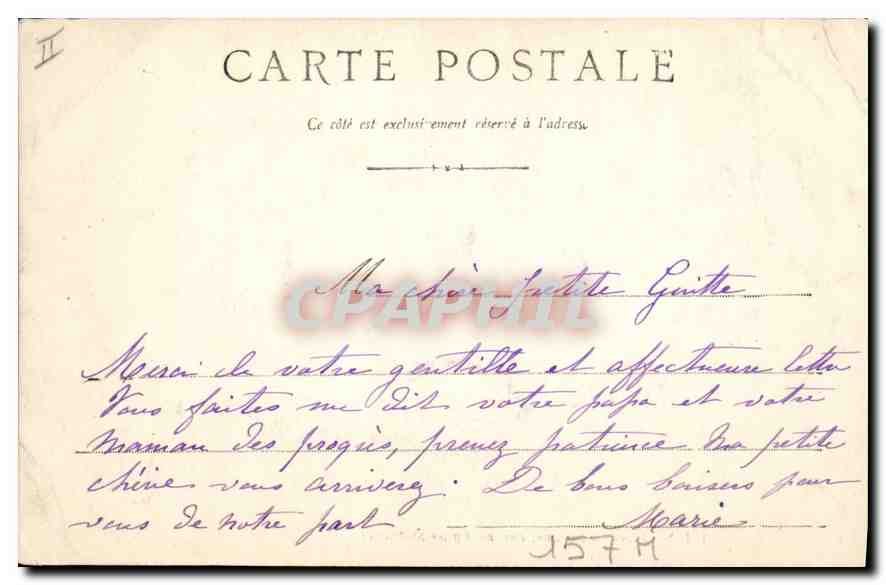 II
CARTE POSTALE
Ce côté est exclusivement réservé à l'adresse
CPAPHIL
Ma chère petite Ginette
Merci de votre gentille et affectueuse lettre
Vous faites me dit votre papa et votre
maman des progrès, prenez patience ma petite
chérie vous arriverez. De bons baisers pour
vous de notre part
Marie
157 M